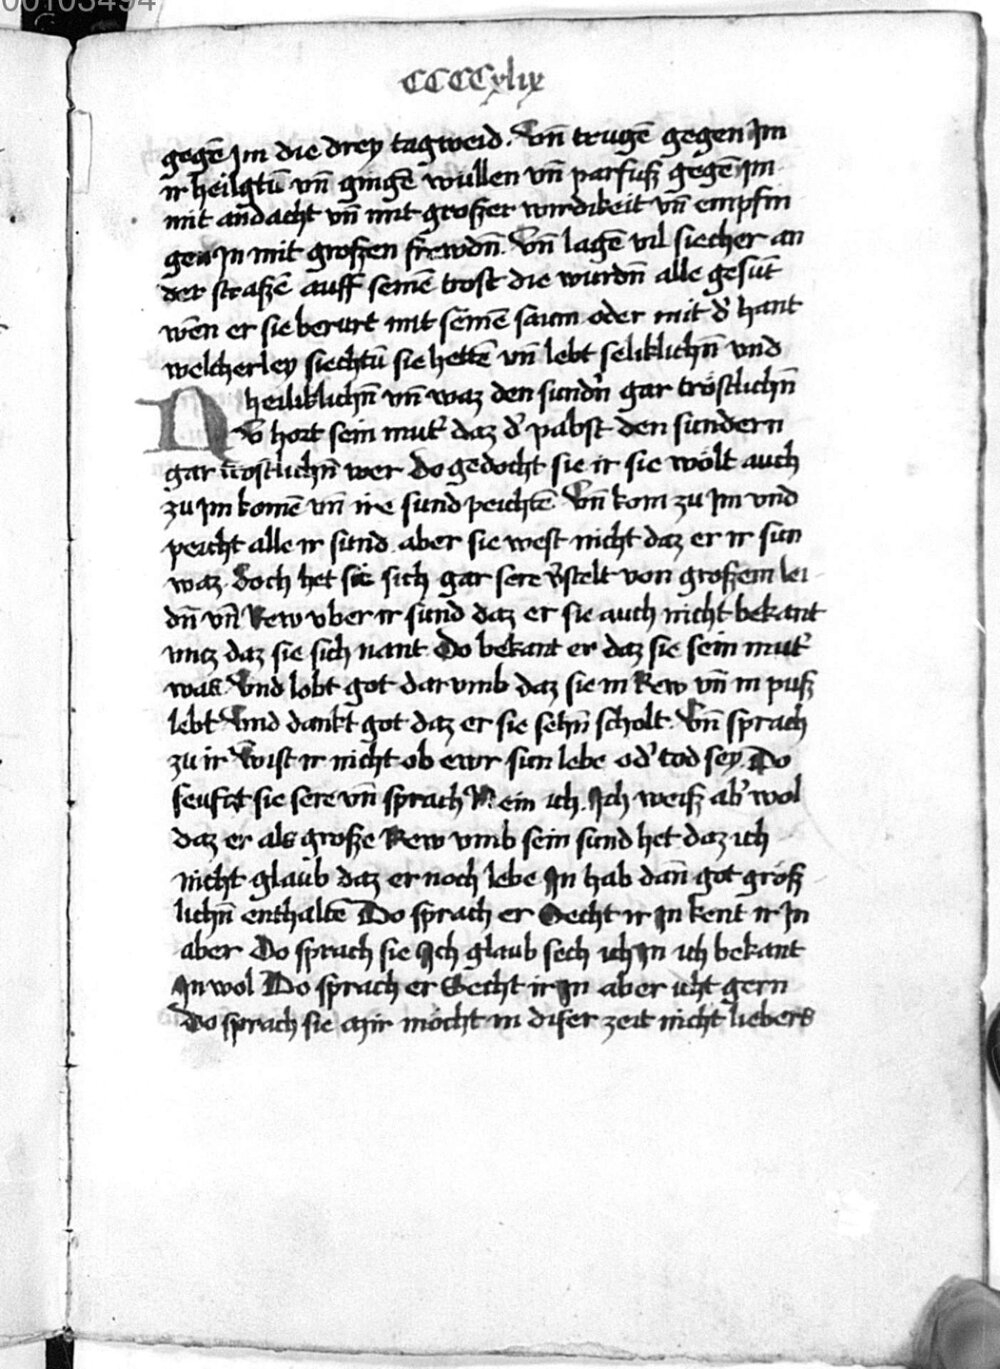 00103494
CCCCxlix
gegē Im die drey tagweid. Vn̄ trugē gegen Im
ir heilgtū vn̄ gingē wullen vn̄ parfuß gegē im
mit andacht vn̄ mit großer wirdikeit vn̄ empfin
gen In mit großen frewdn̄. Vn̄ lagē vil siecher an
der straßē auff seinē trost die wurdn̄ alle gesūt
wen er sie berurt mit seinē saum oder mit d' hant
welcherley siechtū sie hettē vn̄ lebt seliklichn̄ vnd
heiliklichn̄ vn̄ waz den sundn̄ gar tröstlichn̄
Nv̄ hort sein mut' daz d' pabst den sundern
gar trostlichn̄ wer do gedocht sie ir sie wölt auch
zu Im komē vn̄ ire sund peichtē. Vn̄ kom zu Im vnd
peicht alle ir sund. aber sie west nicht daz er ir sun
waz. doch het sie sich gar sere v'stelt von großem lei
dn̄ vn̄ Rew vber ir sund daz er sie auch nicht bekant
vntz daz sie sich nant Do bekant er daz sie sein mut'
was. Vnd lobt got dar vmb daz sie in Rew vn̄ in puß
lebt Vnd dankt got daz er sie sehn̄ scholt. Vn̄ sprach
zu ir Wist ir nicht ob ewr sun lebe od' tod sey. Do
seufzt sie sere vn̄ sprach Nein ich. Ich weiß ab' wol
daz er als große Rew vmb sein sund het daz ich
nicht glaub daz er noch lebe In hab dan̄ got größ
lichn̄ enthaltē Do sprach er Secht ir In kent ir In
aber Do sprach sie Ich glaub sech ich In ich bekant
In wol Do sprach er Secht ir In aber icht gern
Do sprach sie Mir mocht in diser zeit nicht liebers